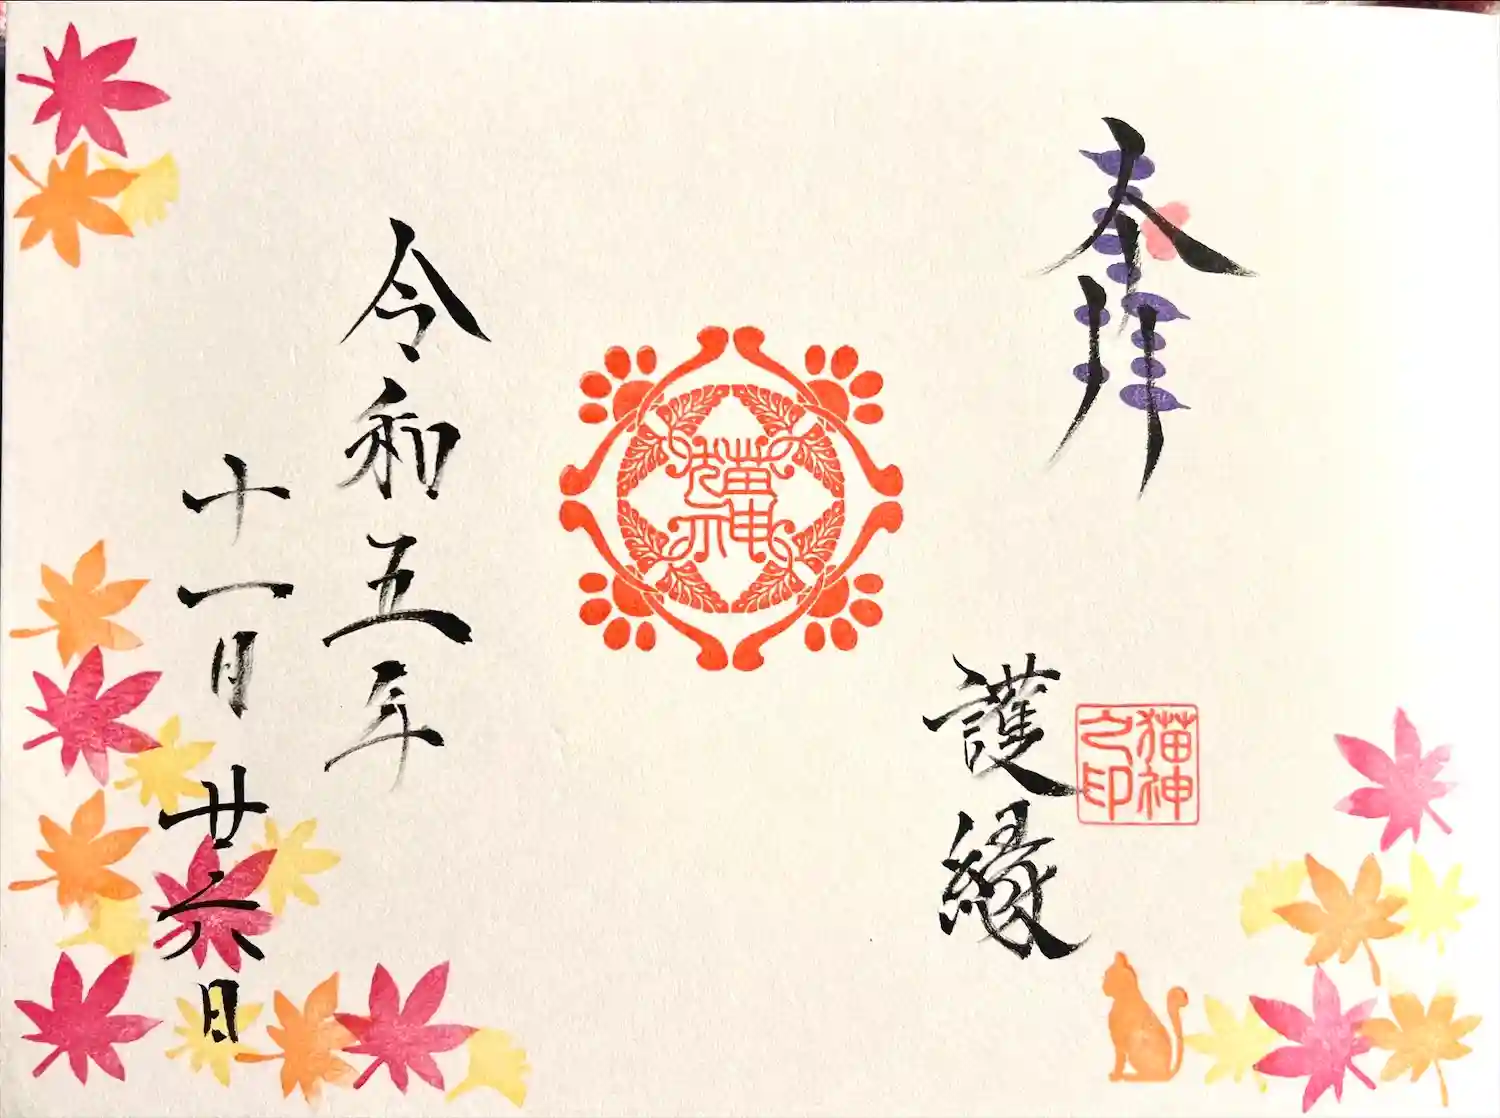 奉拝
護縁
猫神之印
令和五年
十一月廿六日